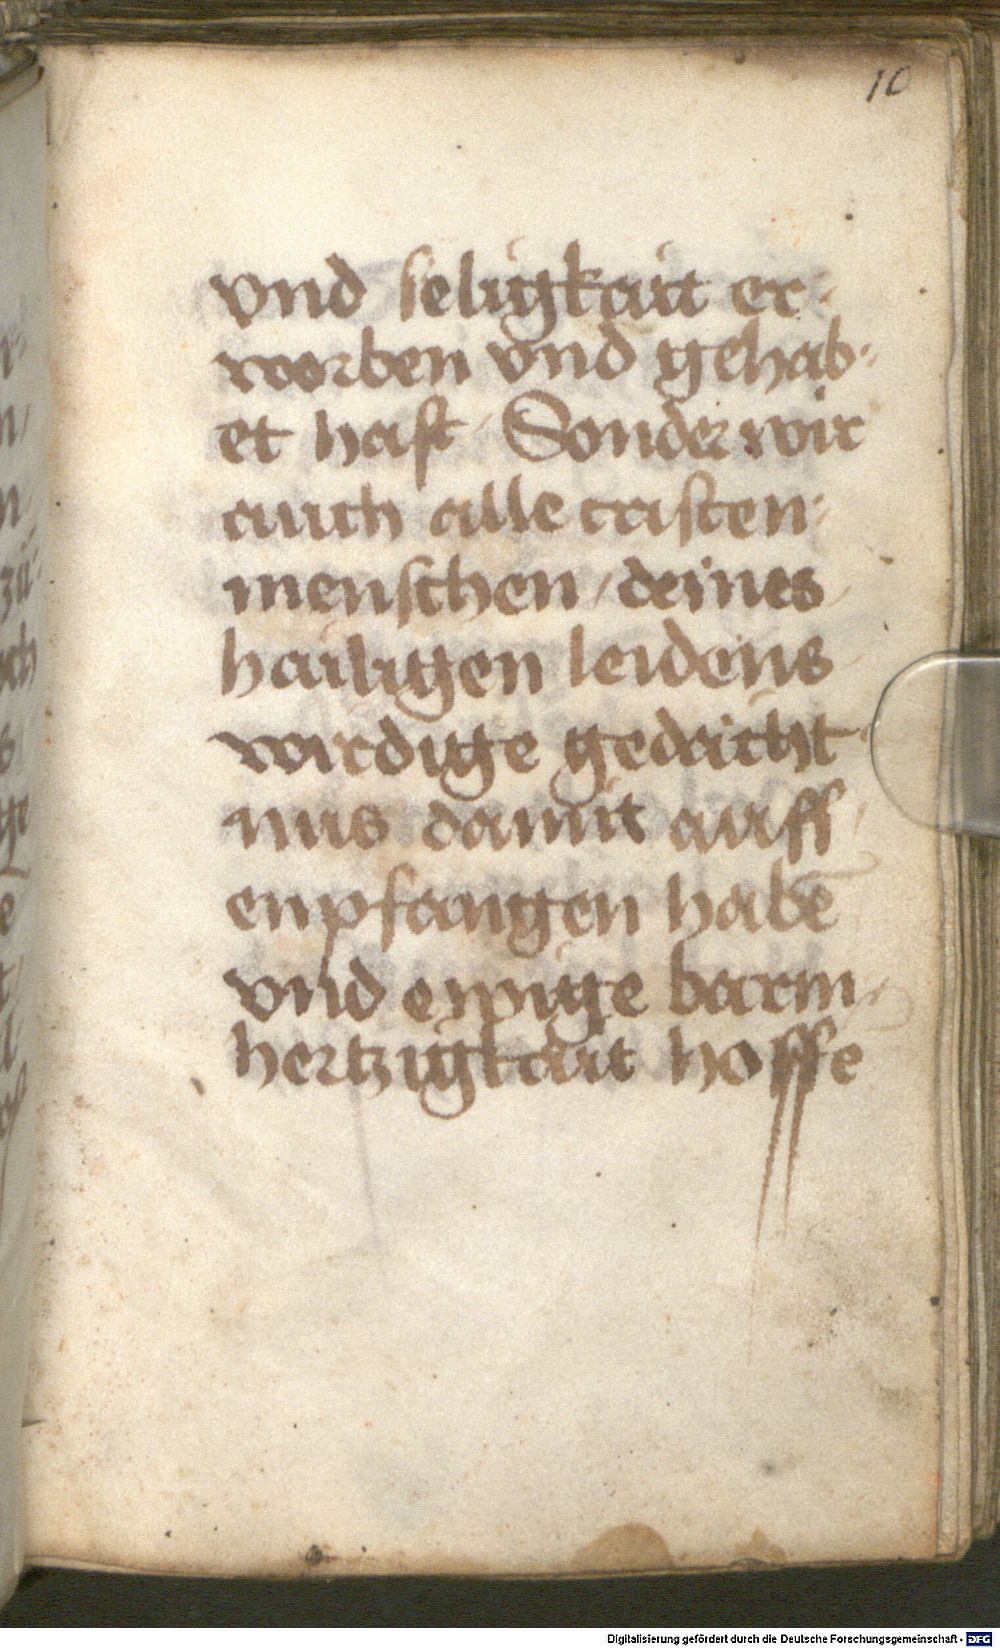 10
vnd seligkait er-
worben vnd gehab-
et hast Sonder wir
auch alle cristen-
menschen / deines
hailigen leidens
wirdige gedächt
nus damit auff
enpfangen habē
vnd ewige barm-
hertzigkait hoffe
Digitalisierung gefördert durch die Deutsche Forschungsgemeinschaft - DFG